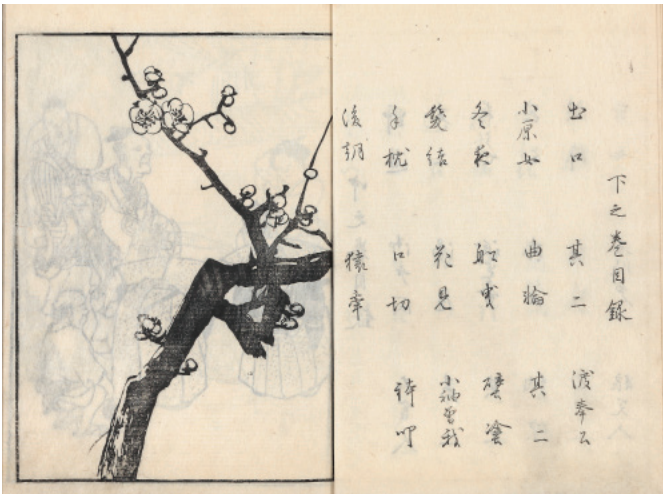 下之巻目録
出口 其二 渡奉公
小原女 曲輪 其二
冬夜 船曳 壁塗
髪結 花見 小袖曽我
手枕 口切 鉢叩
後朝 猿牽